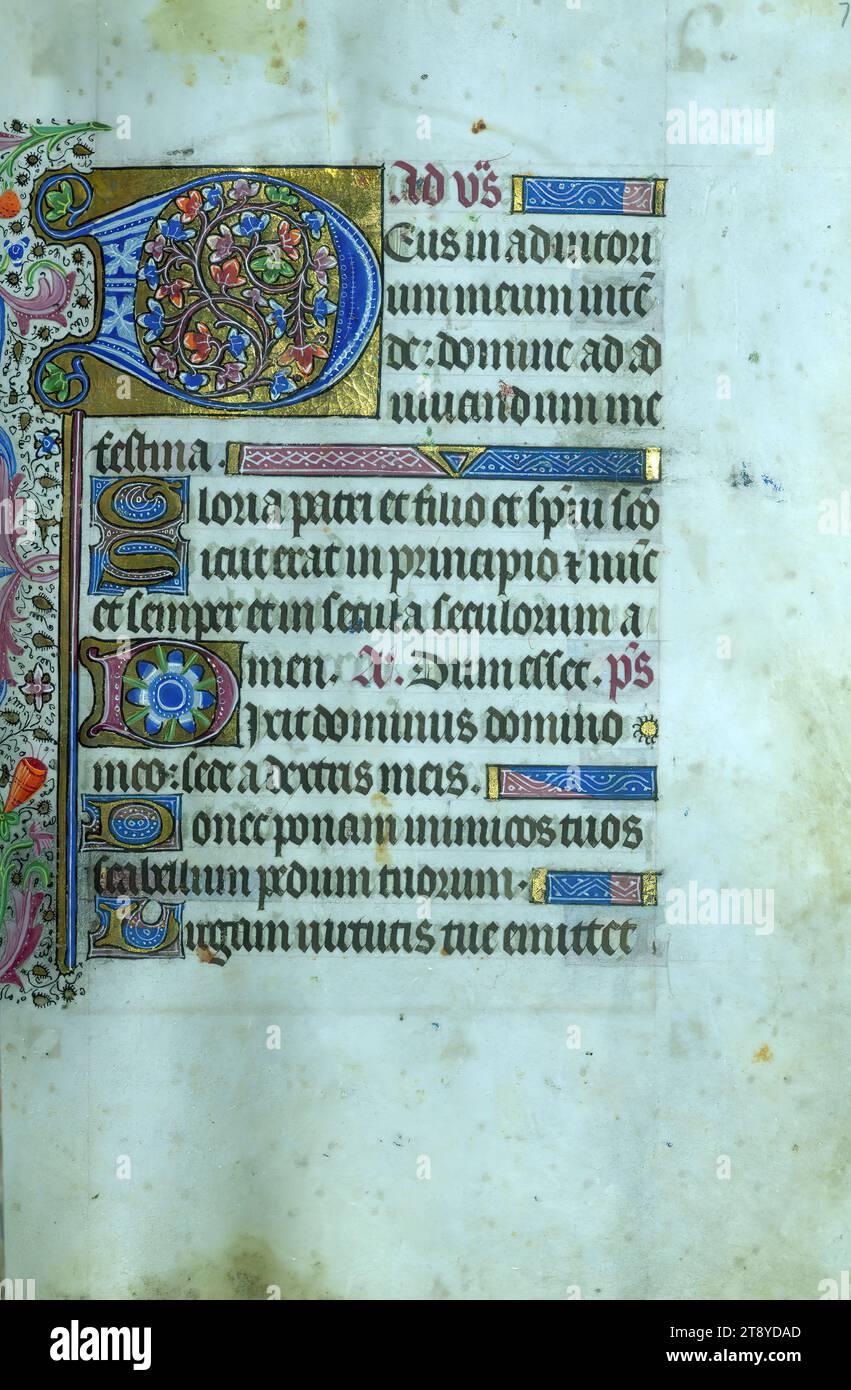 7
Ad v̄s
Deus in adiutori
um meum intē
de: domine ad ad
iuuandum me
festina.
Gloria patri et filio et sp̄ui sc̄o
Sicut erat in principio ⁊ nūc
et semper et in secula seculorum a
men. A. Dum esset. p̄s
Dixit dominus domino
meo: sede a dextris meis.
Donec ponam inimicos tuos
scabellum pedum tuorum.
Uirgam uirtutis tue emittet
alamy
Image ID: 2T8YDAD
www.alamy.com